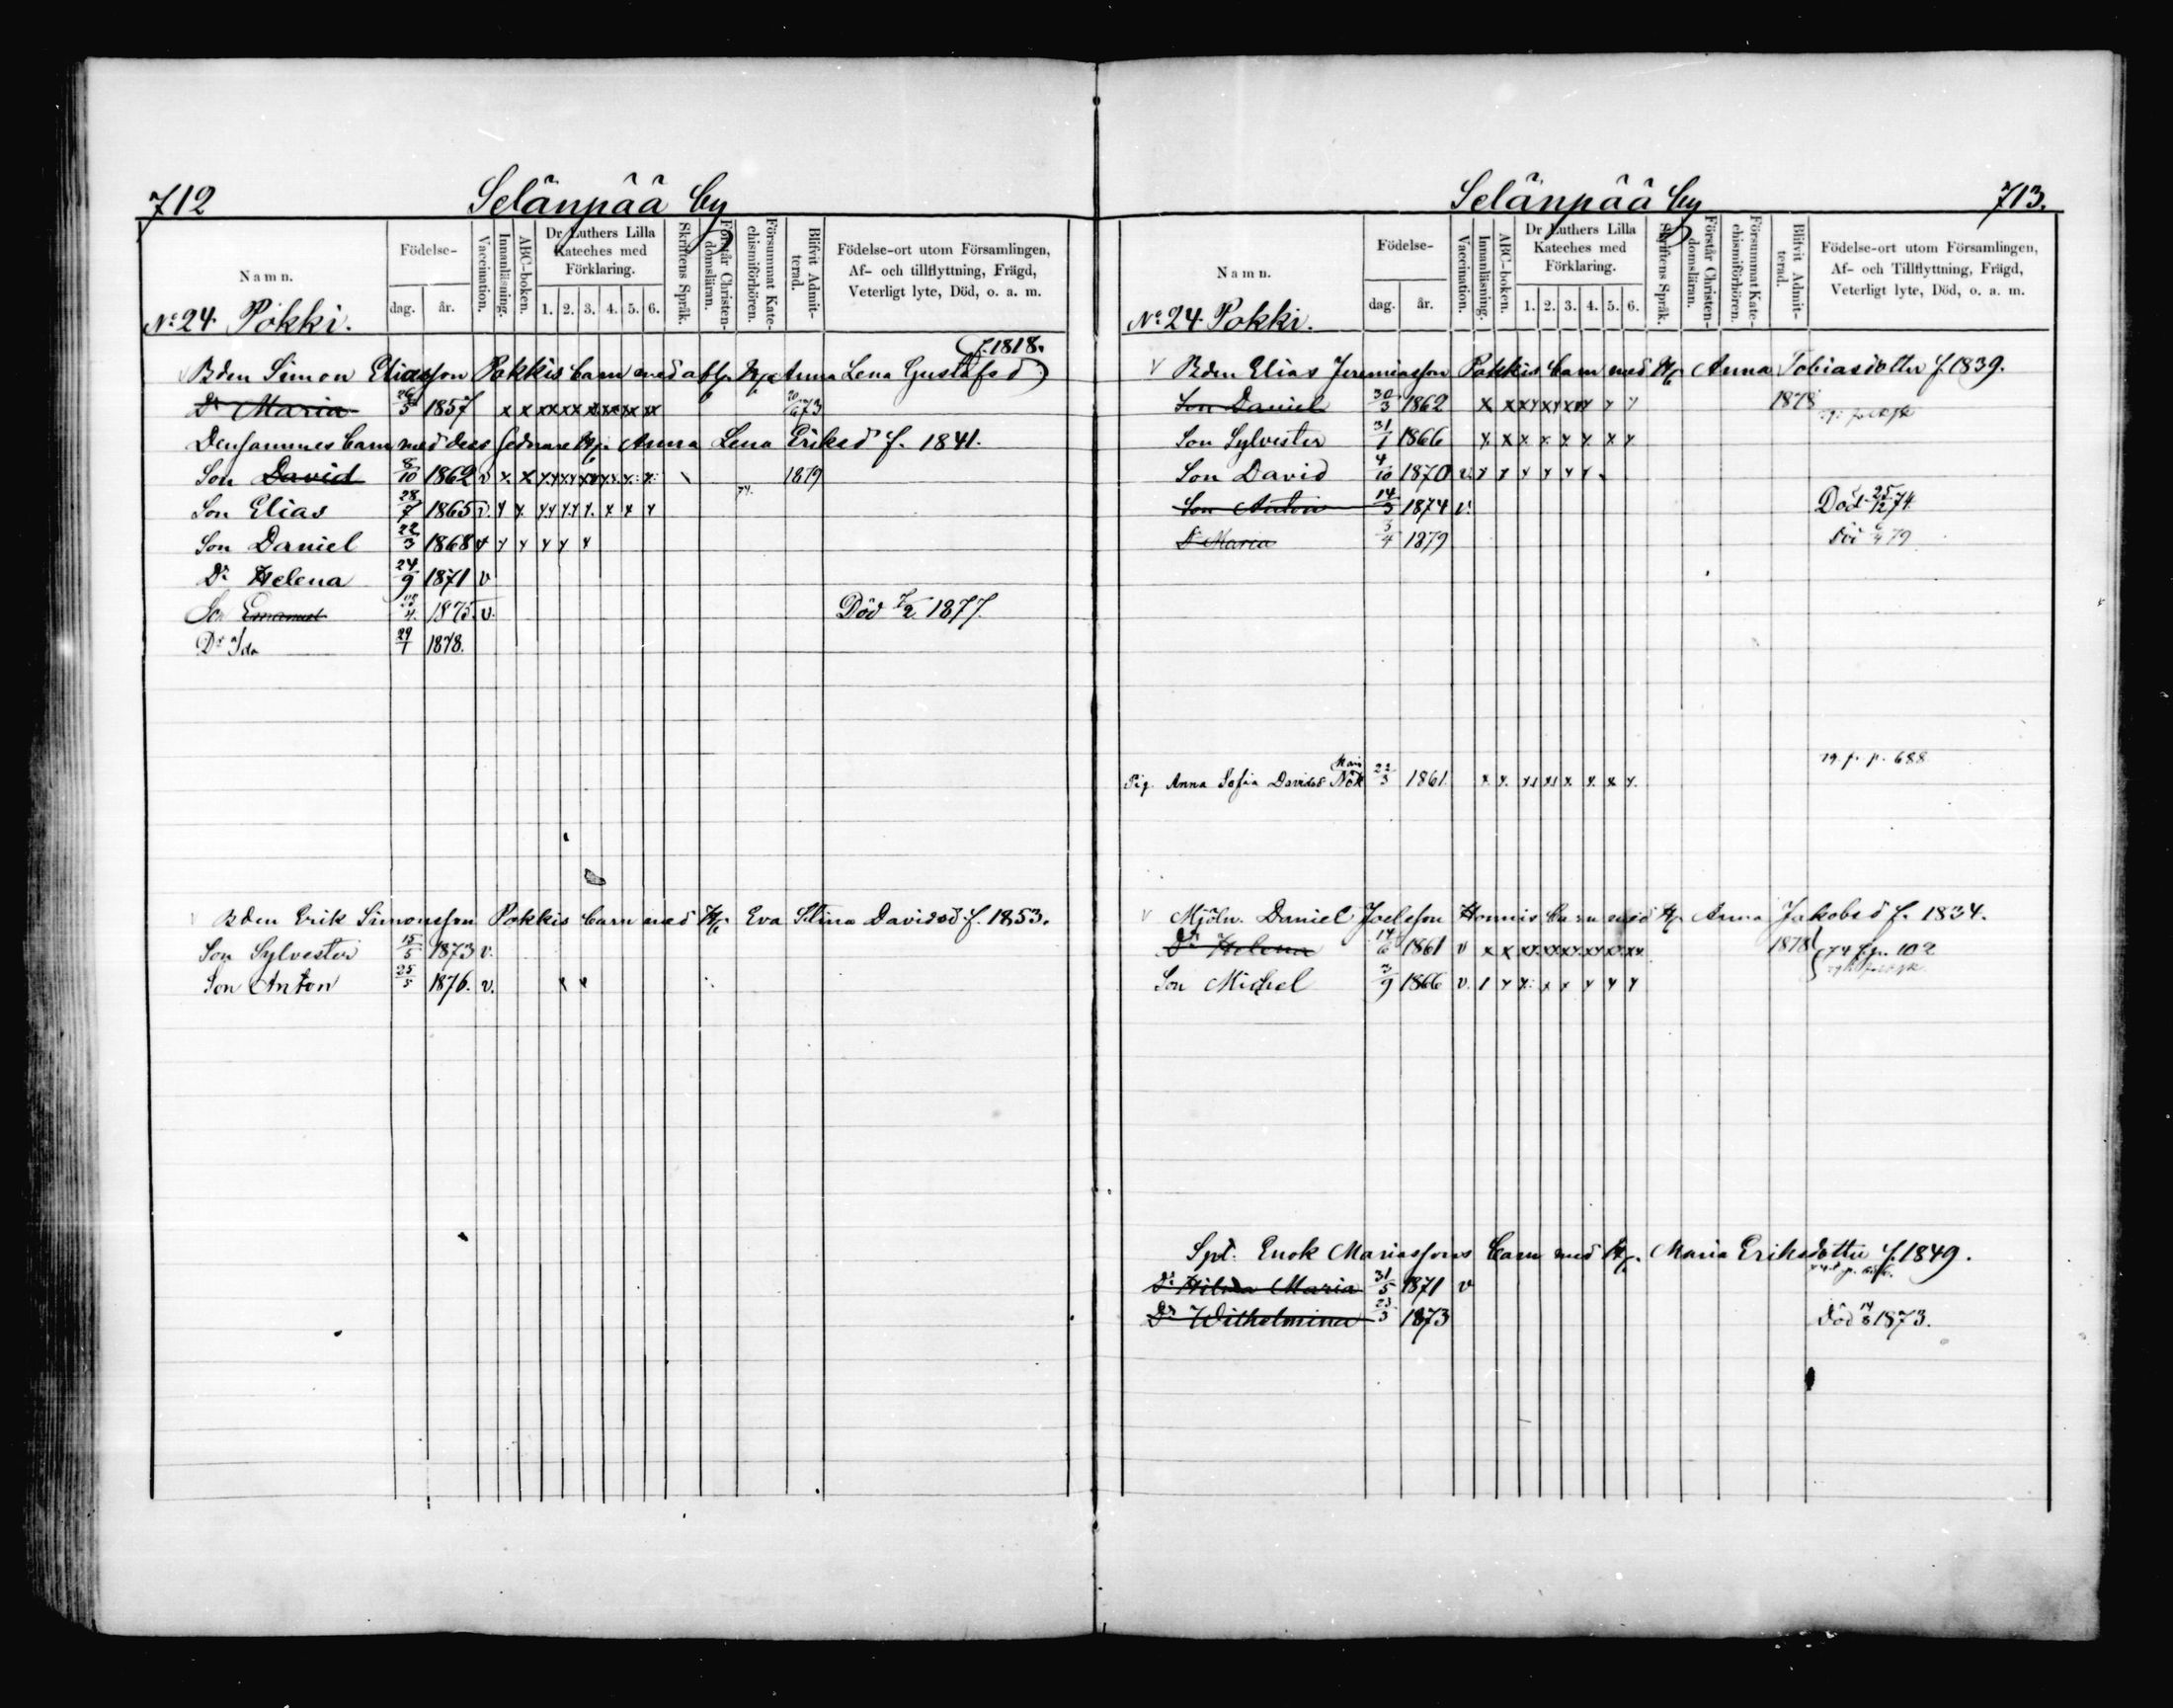 712 Selänpää by
Namn. Födelse- dag. år. Vaccination. Innanläsning. ABC-boken. Dr Luthers Lilla Kateches med Förklaring. 1. 2. 3. 4. 5. 6. Skriftens Språk. Förstår Christendomsläran. Försummat Katechismiförhören. Blifvit Admitterad. Födelse-ort utom Församlingen, Af- och tillflyttning, Frägd, Veterligt lyte, Död, o. a. m.
No 24. Pokki.
f. 1818.
Bden Simon Eliasson Pokkis barn med afl. Hu Anna Lena Gustafsd)
Dr Maria 26/5 1857 x x xx xx xx xx xx xx 20/6 73
Densammes barn med dess sednare Hu. Anna Lena Eriksd f. 1841.
Son David 8/10 1862 v x x 1879
Son Elias 28/7 1865 v. x x
Son Daniel 22/3 1868 v x x x x x
Dr Helena 24/9 1871 v
Son Emanuel 1875. v. Död 7/2 1877.
Dr Ida 29/1 1878.
v Bden Erik Simonsson Pokkis barn med Hu. Eva Stina Davidsd f. 1853.
Son Sylvester 15/5 1873 v.
Son Anton 25/5 1876. v. x x
Selänpää by 713.
Namn. Födelse- dag. år. Vaccination. Innanläsning. ABC-boken. Dr Luthers Lilla Kateches med Förklaring. 1. 2. 3. 4. 5. 6. Skriftens Språk. Förstår Christendomsläran. Försummat Katechismiförhören. Blifvit Admitterad. Födelse-ort utom Församlingen, Af- och Tillflyttning, Frägd, Veterligt lyte, Död, o. a. m.
No 24. Pokki.
v Bden Elias Jeremiasson Pokkis barn med Hu Anna Tobiasdotter f. 1839.
Son Daniel 30/3 1862 x x xx xx xx x x x 1878
Son Sylvester 31/1 1866 x x x x x x x x
Son David 4/10 1870 v. x x x x x x
Son Anton 14/3 1874 v. Död 25/12 74.
Dr Maria 3/4 1879 Död 79
79 f. p. 688
Pig. Anna Sofia Davidsd Nök 22/3 1861. x x xx xx x x x x
v Mjöln. Daniel Joelsson Honnis barn med Hu Anna Jakobsd f. 1834.
Dr Helena 14/6 1861 v x x xx xx xx xx xx xx 1878 74 f. p. 102
Son Michel 3/9 1866 v. x x x x x x x x
Spl. Enok Mariassons barn med Hu. Maria Eriksdotter f. 1849.
Dr Hilma Maria 31/5 1871 v
Dr Wilhelmina 23/3 1873 Död 14/8 1873.